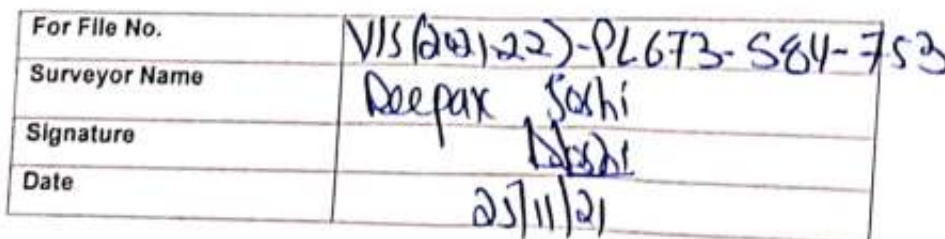 For File No. VIS(2021-22)-PL673-584-753
Surveyor Name Deepak Joshi
Signature DJoshi
Date 25/11/21